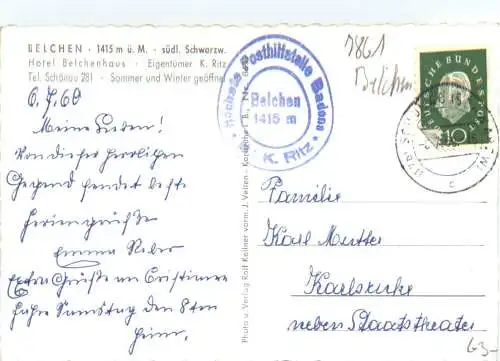 BELCHEN · 1415 m ü. M. · südl. Schwarzw.
Hotel Belchenhaus · Eigentümer K. Ritz
Tel. Schönau 281 · Sommer und Winter geöffnet
6.7.60
Meine Lieben!
Von dieser herrlichen
Gegend sendet beste
Feriengrüße
Emma
Extra Grüße an Christiane
Samstag den 8ten
heim.
Höchste Posthilfstelle Badens
Belchen
1415 m
K. Ritz
7861
Belchen
DEUTSCHE BUNDESPOST
10
Photo u. Verlag Rolf Kellner vorm. J. Velten · Karlsruhe
Familie
Karl
Karlsruhe
neben Staatstheater
63-